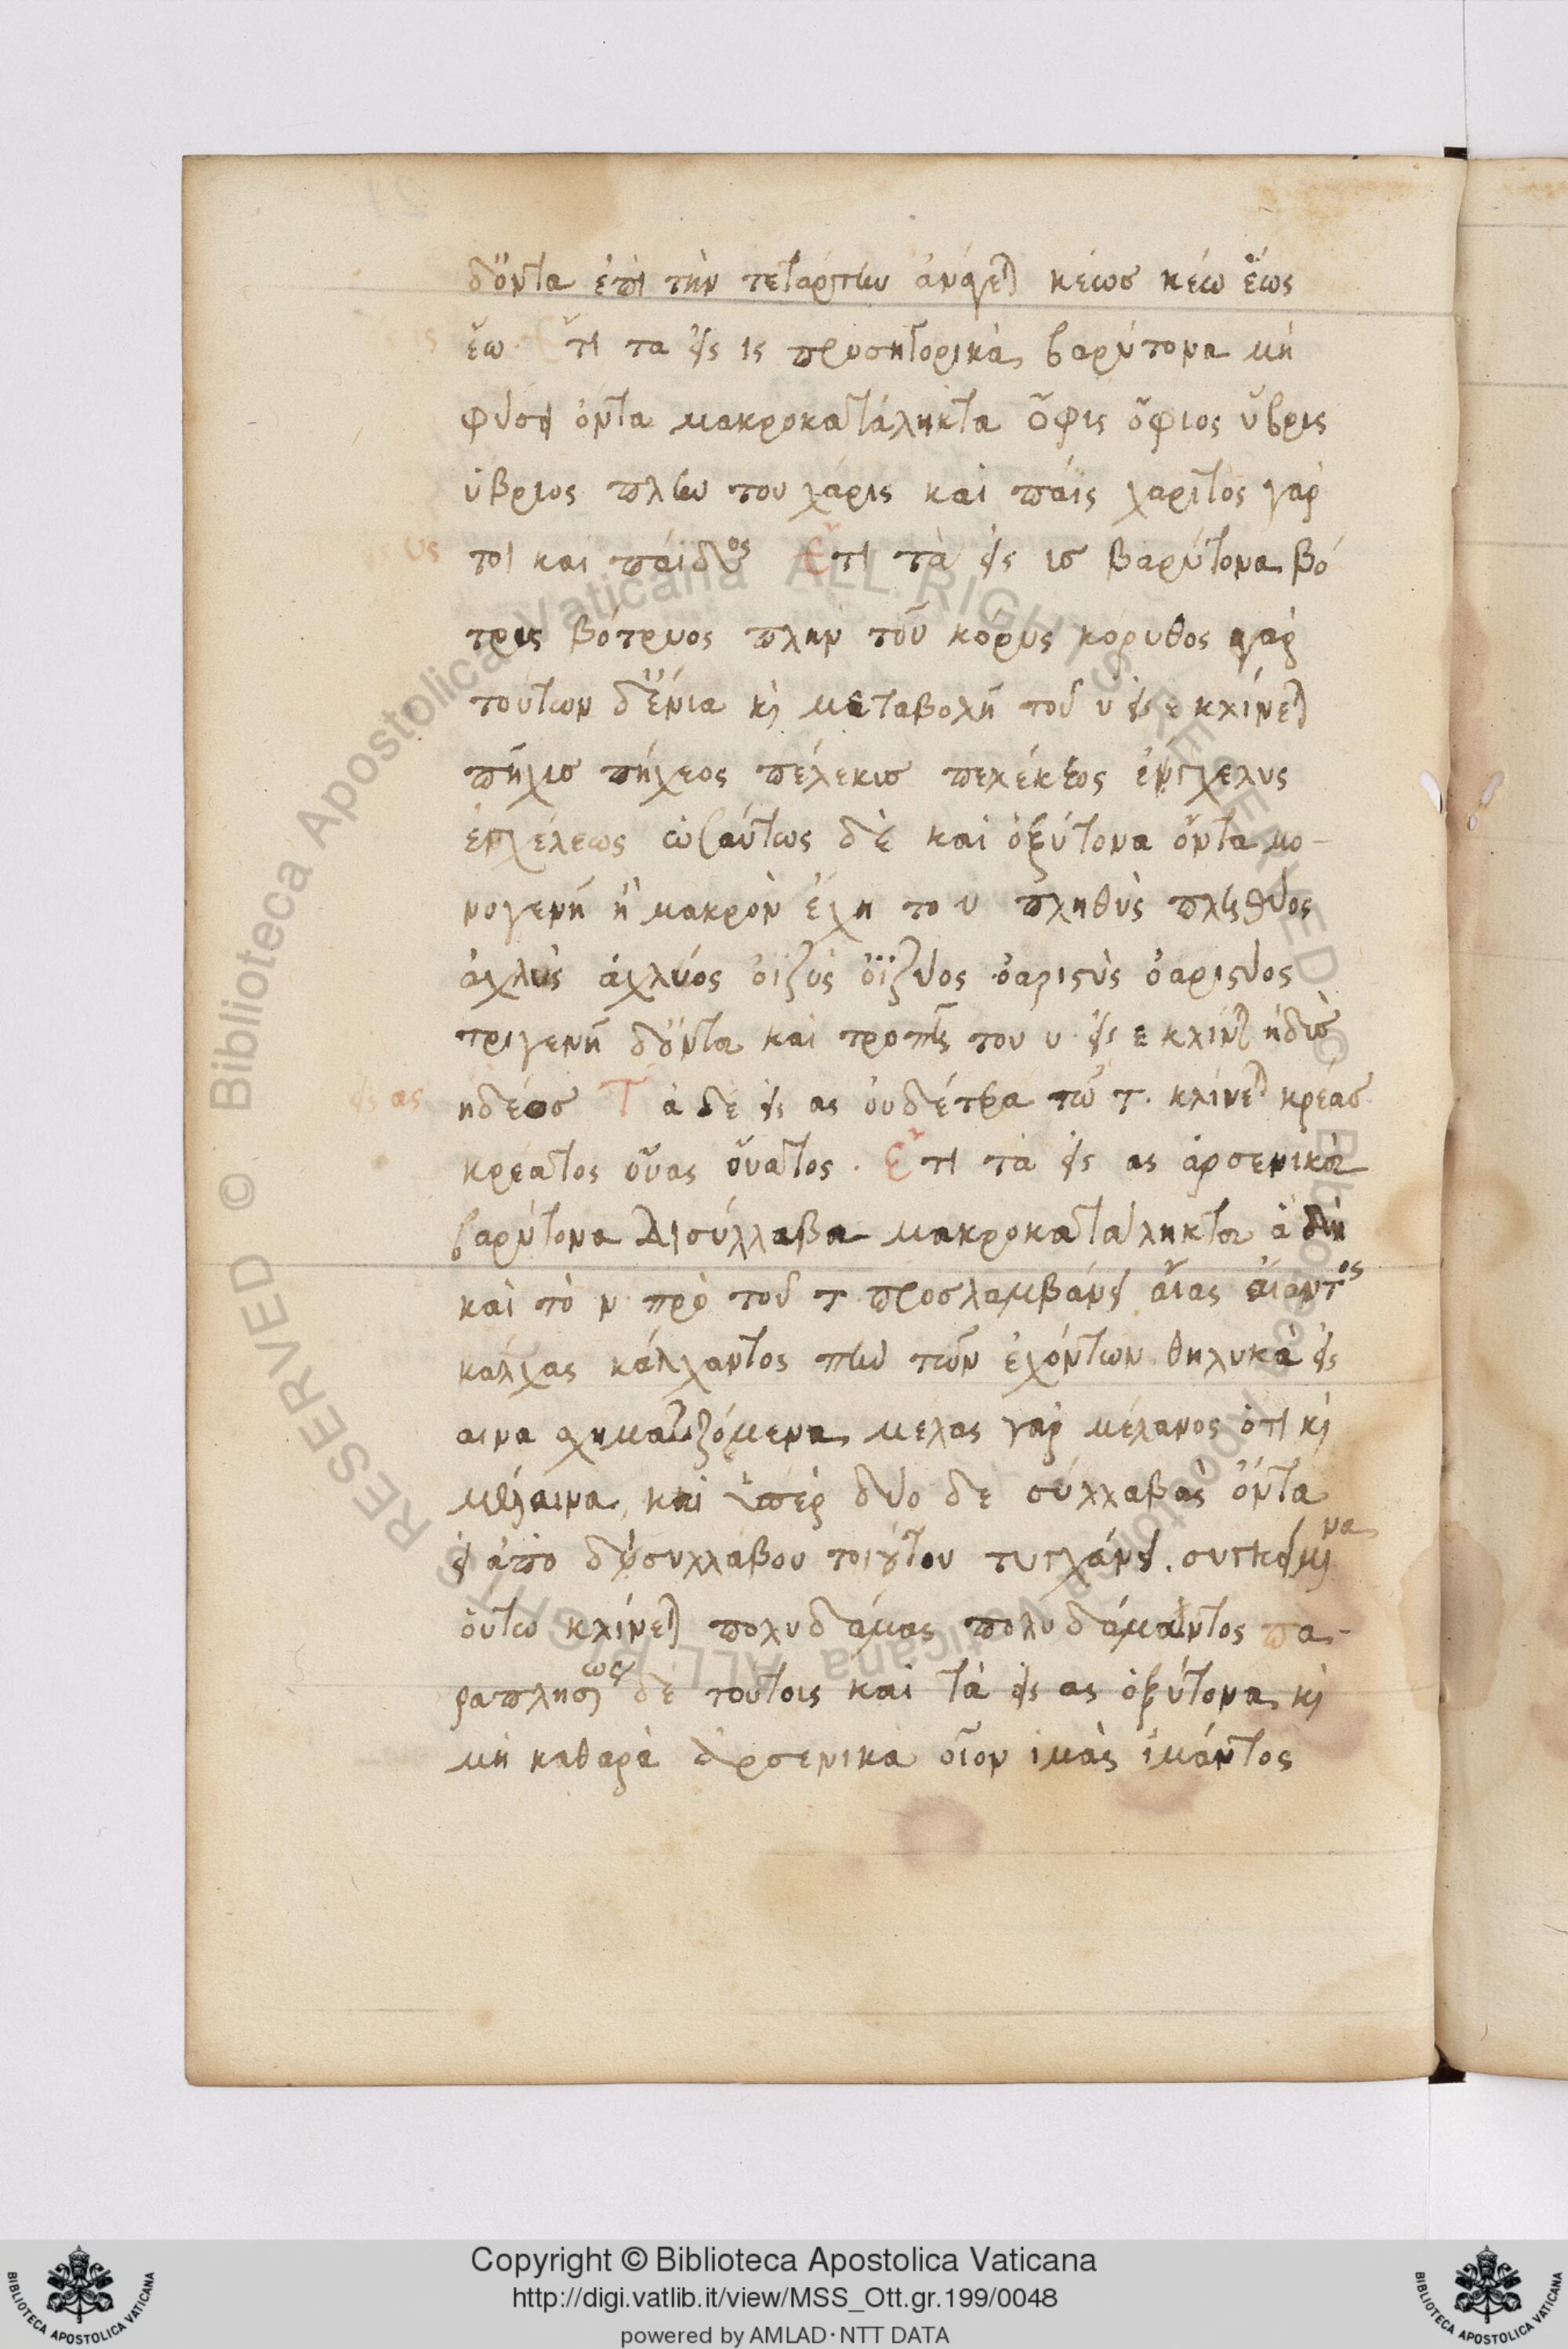 δόντα ἐπὶ τὴν τετάρτην ἀνάγεται κέωσ κέω ἕως
ἕω Ἔτι τα εἰς ις προσηγορικὰ βαρύτονα μὴ
φύσει ὄντα μακροκατάληκτα ὄφις ὄφιος ὕβρις
ὑβριος πλὴν του χάρις καὶ πάϊς χαριτος γάρ
τοι καὶ πάϊδος Ἔτι τὰ εἰς ισ βαρύτονα βό
τρις βότρυος πλὴν τοῦ κόρυς κόρυθος γαρ
τούτων δ' ἔνια καὶ μεταβολῆ τοῦ υ εἰς ε κλίνεται
πῆχισ πήχεος πέλεκισ πελέκεος ἐγχελυς
ἐγχέλεως ὡσαύτως δὲ καὶ ὀξύτονα ὄντα μο-
νογενῆ ἢ μακρὸν ἔχη το υ πληθὺς πληθύος
ἀχλὺς ἀχλύος ὀϊζὺς ὀϊζύος ὀαριςὺς ὀαριςύος
τριγενῆ δ' ὄντα καὶ τροπῆς του υ εἰς ε κλίνεται ἡδὺσ
ηδέοσ Τὰ δὲ εἰς ας οὐδέτερα τῶ τ. κλίνεται κρέασ
κρέατος οὖας οὔατος . Ἔτι τὰ εἰς ας ἀρσενικὰ
βαρύτονα δισύλλαβα μακροκατάληκτα ἃ δὴ
καὶ τὸ ν πρὸ τοῦ τ προσλαμβάνει αἴας αἴαντος
κάλχας κάλχαντος πλὴν τῶν ἐχόντων θηλυκὰ εἰς
αινα σχηματιζόμενα μέλας γαρ μέλανος ὅτι καὶ
μέλαινα, καὶ ὑπὲρ δύο δὲ συλλαβὰς ὄντα
εἰ ἀπὸ δισυλλάβου τοιούτου τυγχάνει. συγκείμενα
οὕτω κλίνεται πολυδάμας πολυδάμαντος πα-
ραπλησίως δὲ τούτοις καὶ τὰ εἰς ας ὀξύτονα καὶ
μὴ καθαρὰ ἀρσενικὰ οἷον ἱμὰς ἱμάντος
ις
υς
εἰς ας
Copyright © Biblioteca Apostolica Vaticana
http://digi.vatlib.it/view/MSS_Ott.gr.199/0048
powered by AMLAD·NTT DATA
Biblioteca Apostolica Vaticana ALL RIGHTS RESERVED ©
Biblioteca Apostolica Vaticana ALL RIGHTS RESERVED ©
BIBLIOTECA APOSTOLICA VATICANA
BIBLIOTECA APOSTOLICA VATICANA